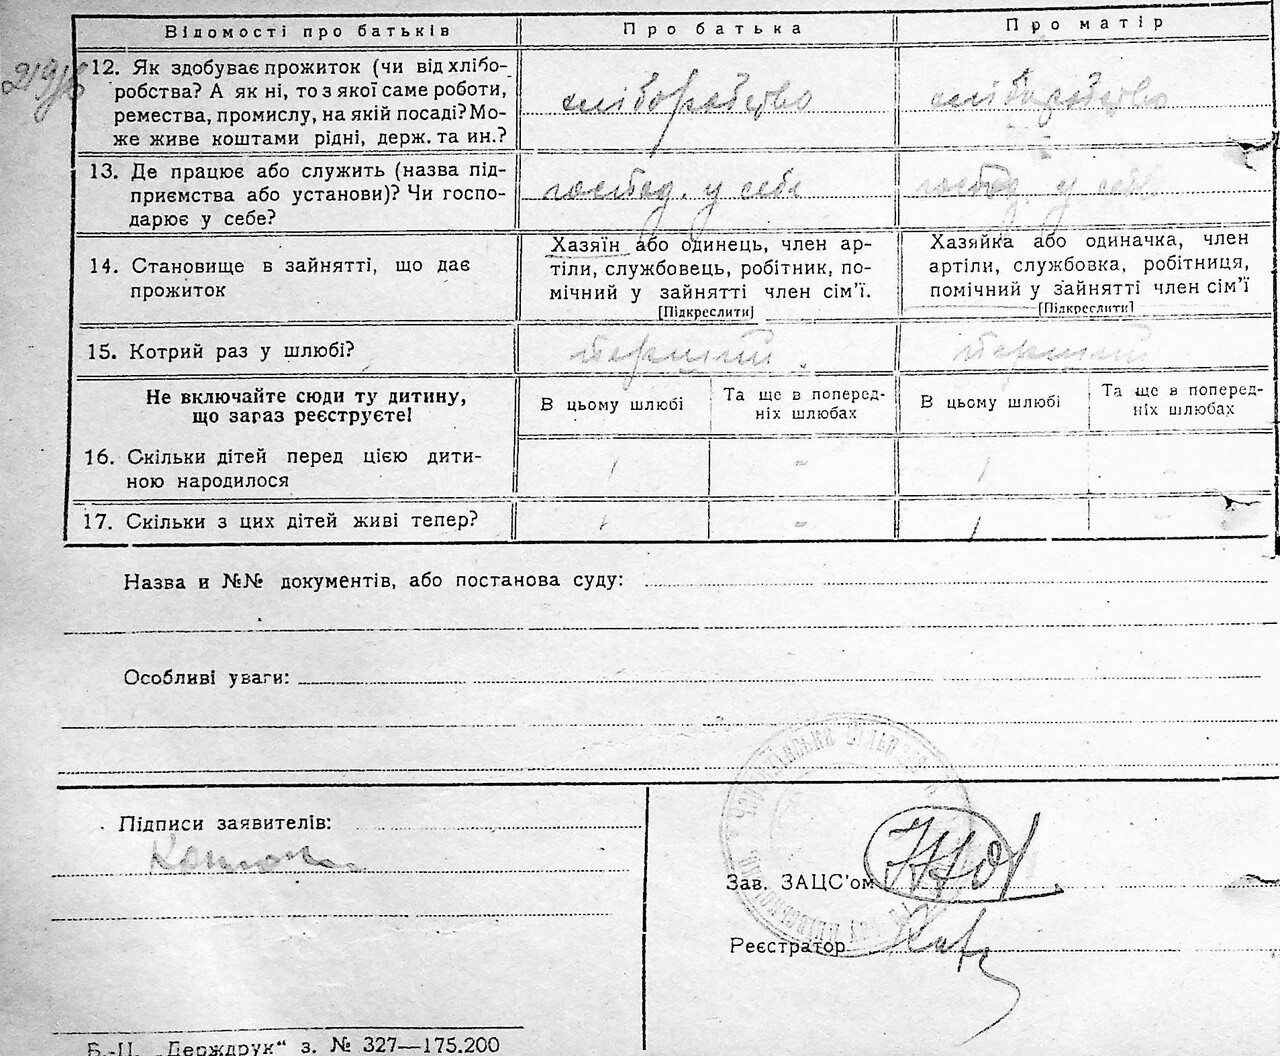 Відомості про батьків
Про батька
Про матір
12. Як здобуває прожиток (чи від хлібо-
робства? А як ні, то з якої саме роботи,
ремества, промислу, на якій посаді? Мо-
же живе коштами рідні, держ. та ин.?
хліборобство
хліборобство
13. Де працює або служить (назва під-
приємства або установи)? Чи госпо-
дарює у себе?
господ. у себе
господ. у себе
14. Становище в зайнятті, що дає
прожиток
Хазяїн або одинець, член ар-
тіли, службовець, робітник, по-
мічний у зайнятті член сім'ї.
[Підкреслити]
Хазяйка або одиначка, член
артіли, службовка, робітниця,
помічний у зайнятті член сім'ї
[Підкреслити]
15. Котрий раз у шлюбі?
перший
перший
Не включайте сюди ту дитину,
що зараз реєструєте!
В цьому шлюбі
Та ще в поперед-
ніх шлюбах
В цьому шлюбі
Та ще в поперед-
ніх шлюбах
16. Скільки дітей перед цією дити-
ною народилося
1
-
1
-
17. Скільки з цих дітей живі тепер?
1
-
1
-
Назва и №№ документів, або постанова суду:
Особливі уваги:
Підписи заявителів:
Зав. ЗАЦС'ом
Реєстратор
Б.-Ц. „Держдрук“ з. № 327—175.200